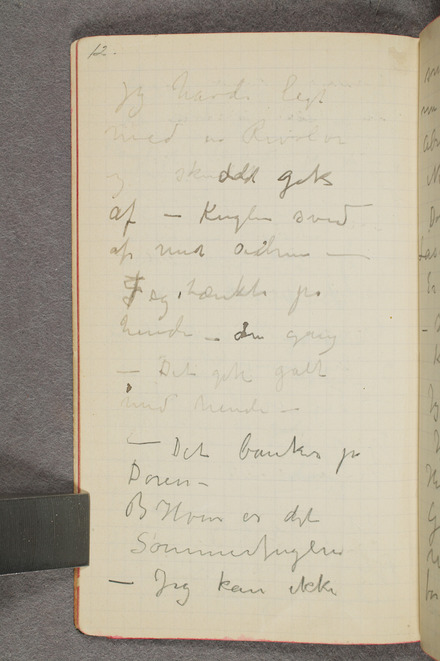 12.
Jeg havde legt
med en Revolver
og skuddet gik
af — Kuglen sved
af min
Jeg tænkte på
hende — den gang
— Det gik galt
med hende —
— Det banker på
Døren —
B Hvem er det
Sommerfuglen
— Jeg kan ikke